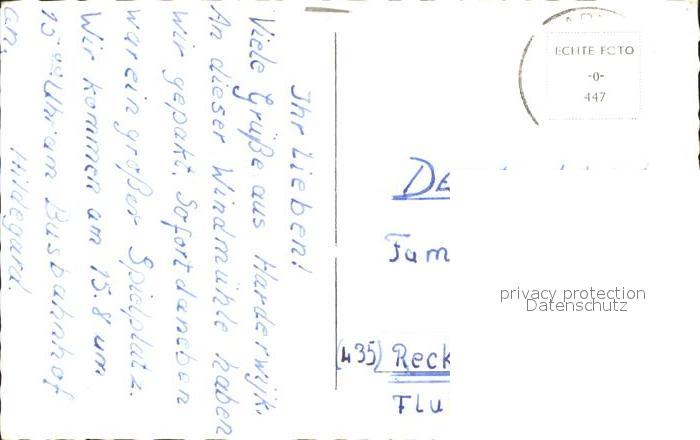 Ihr Lieben!
Viele Grüße aus Harderwijk.
An dieser Windmühle haben
wir gepakt. Sofort daneben
war ein großer Spielplatz.
Wir kommen am 15.8 um
15⁰⁰ Uhr am Busbahnhof
an.
Hildegard
ECHTE FOTO
-0-
447
privacy protection
Datenschutz
(435) Reck
Flu